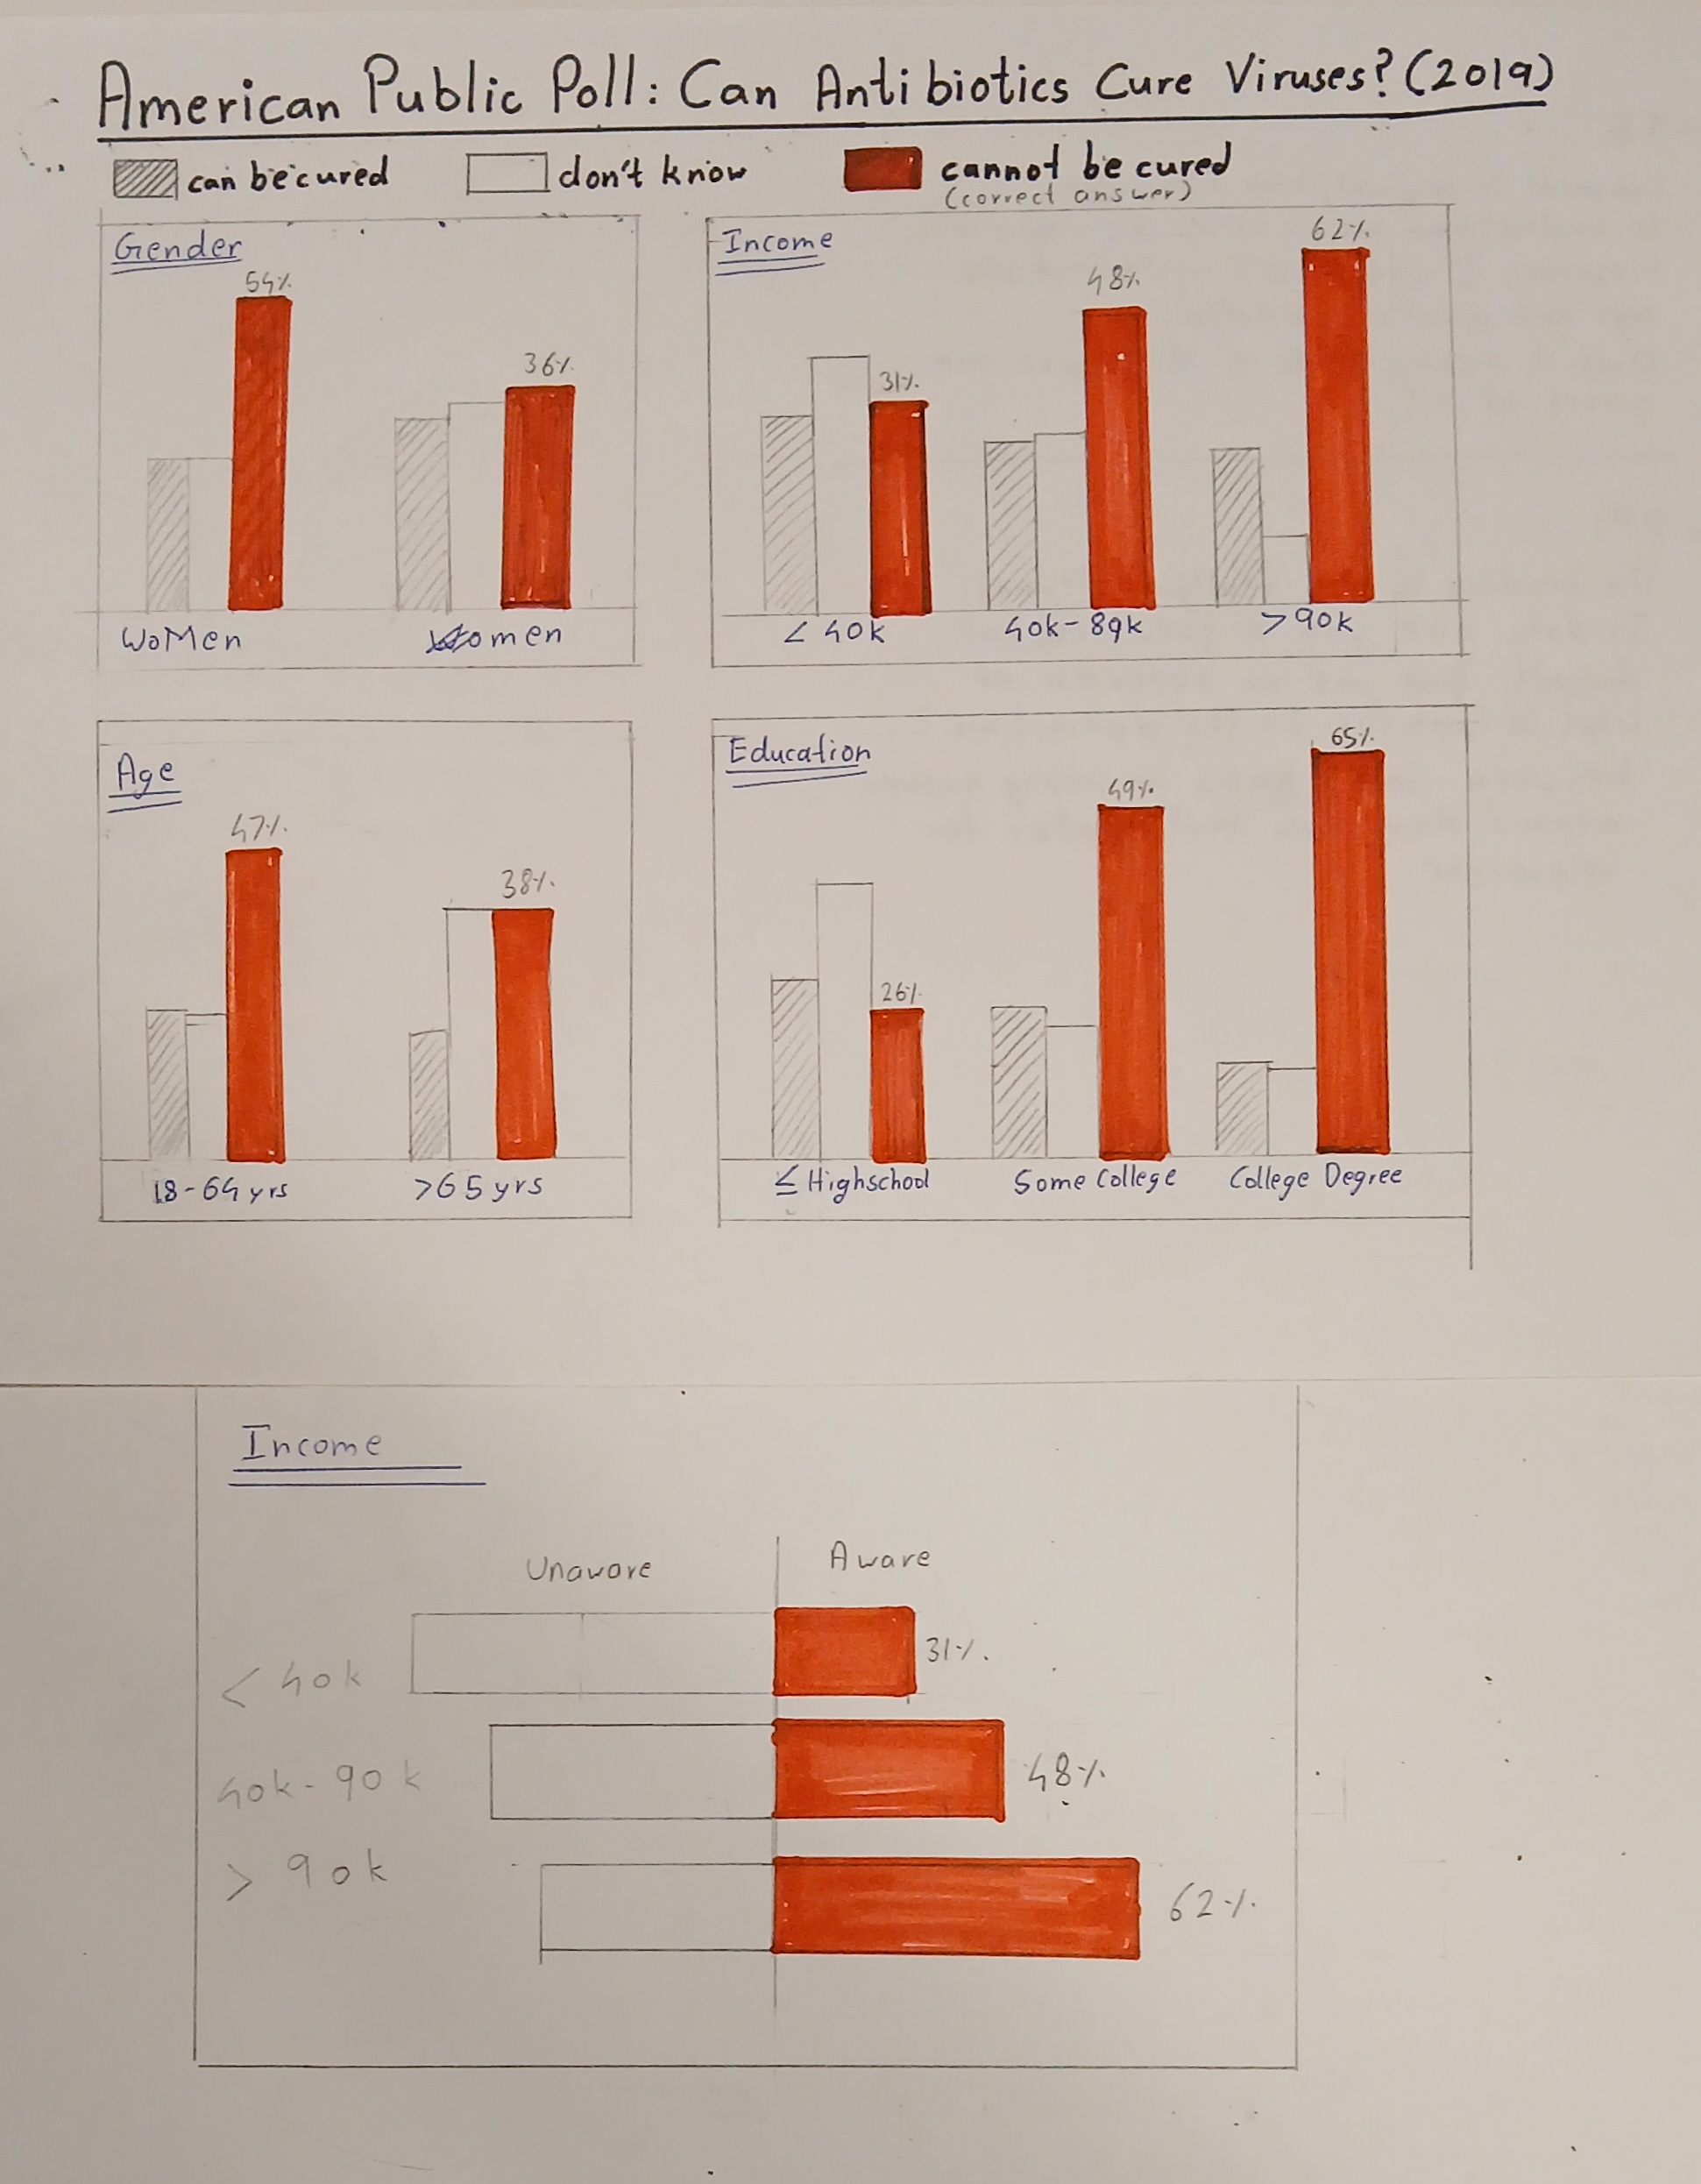 American Public Poll: Can Antibiotics Cure Viruses? (2019)
can be cured
don't know
cannot be cured
(correct answer)
Gender
54%
36%
WoMen
women
Income
31%
48%
62%
< 40k
40k-89k
>90k
Age
47%
38%
18-64 yrs
>65 yrs
Education
26%
49%
65%
≤ Highschool
Some College
College Degree
Income
Unaware
Aware
< 40k
31%.
40k-90k
48%
> 90k
62%